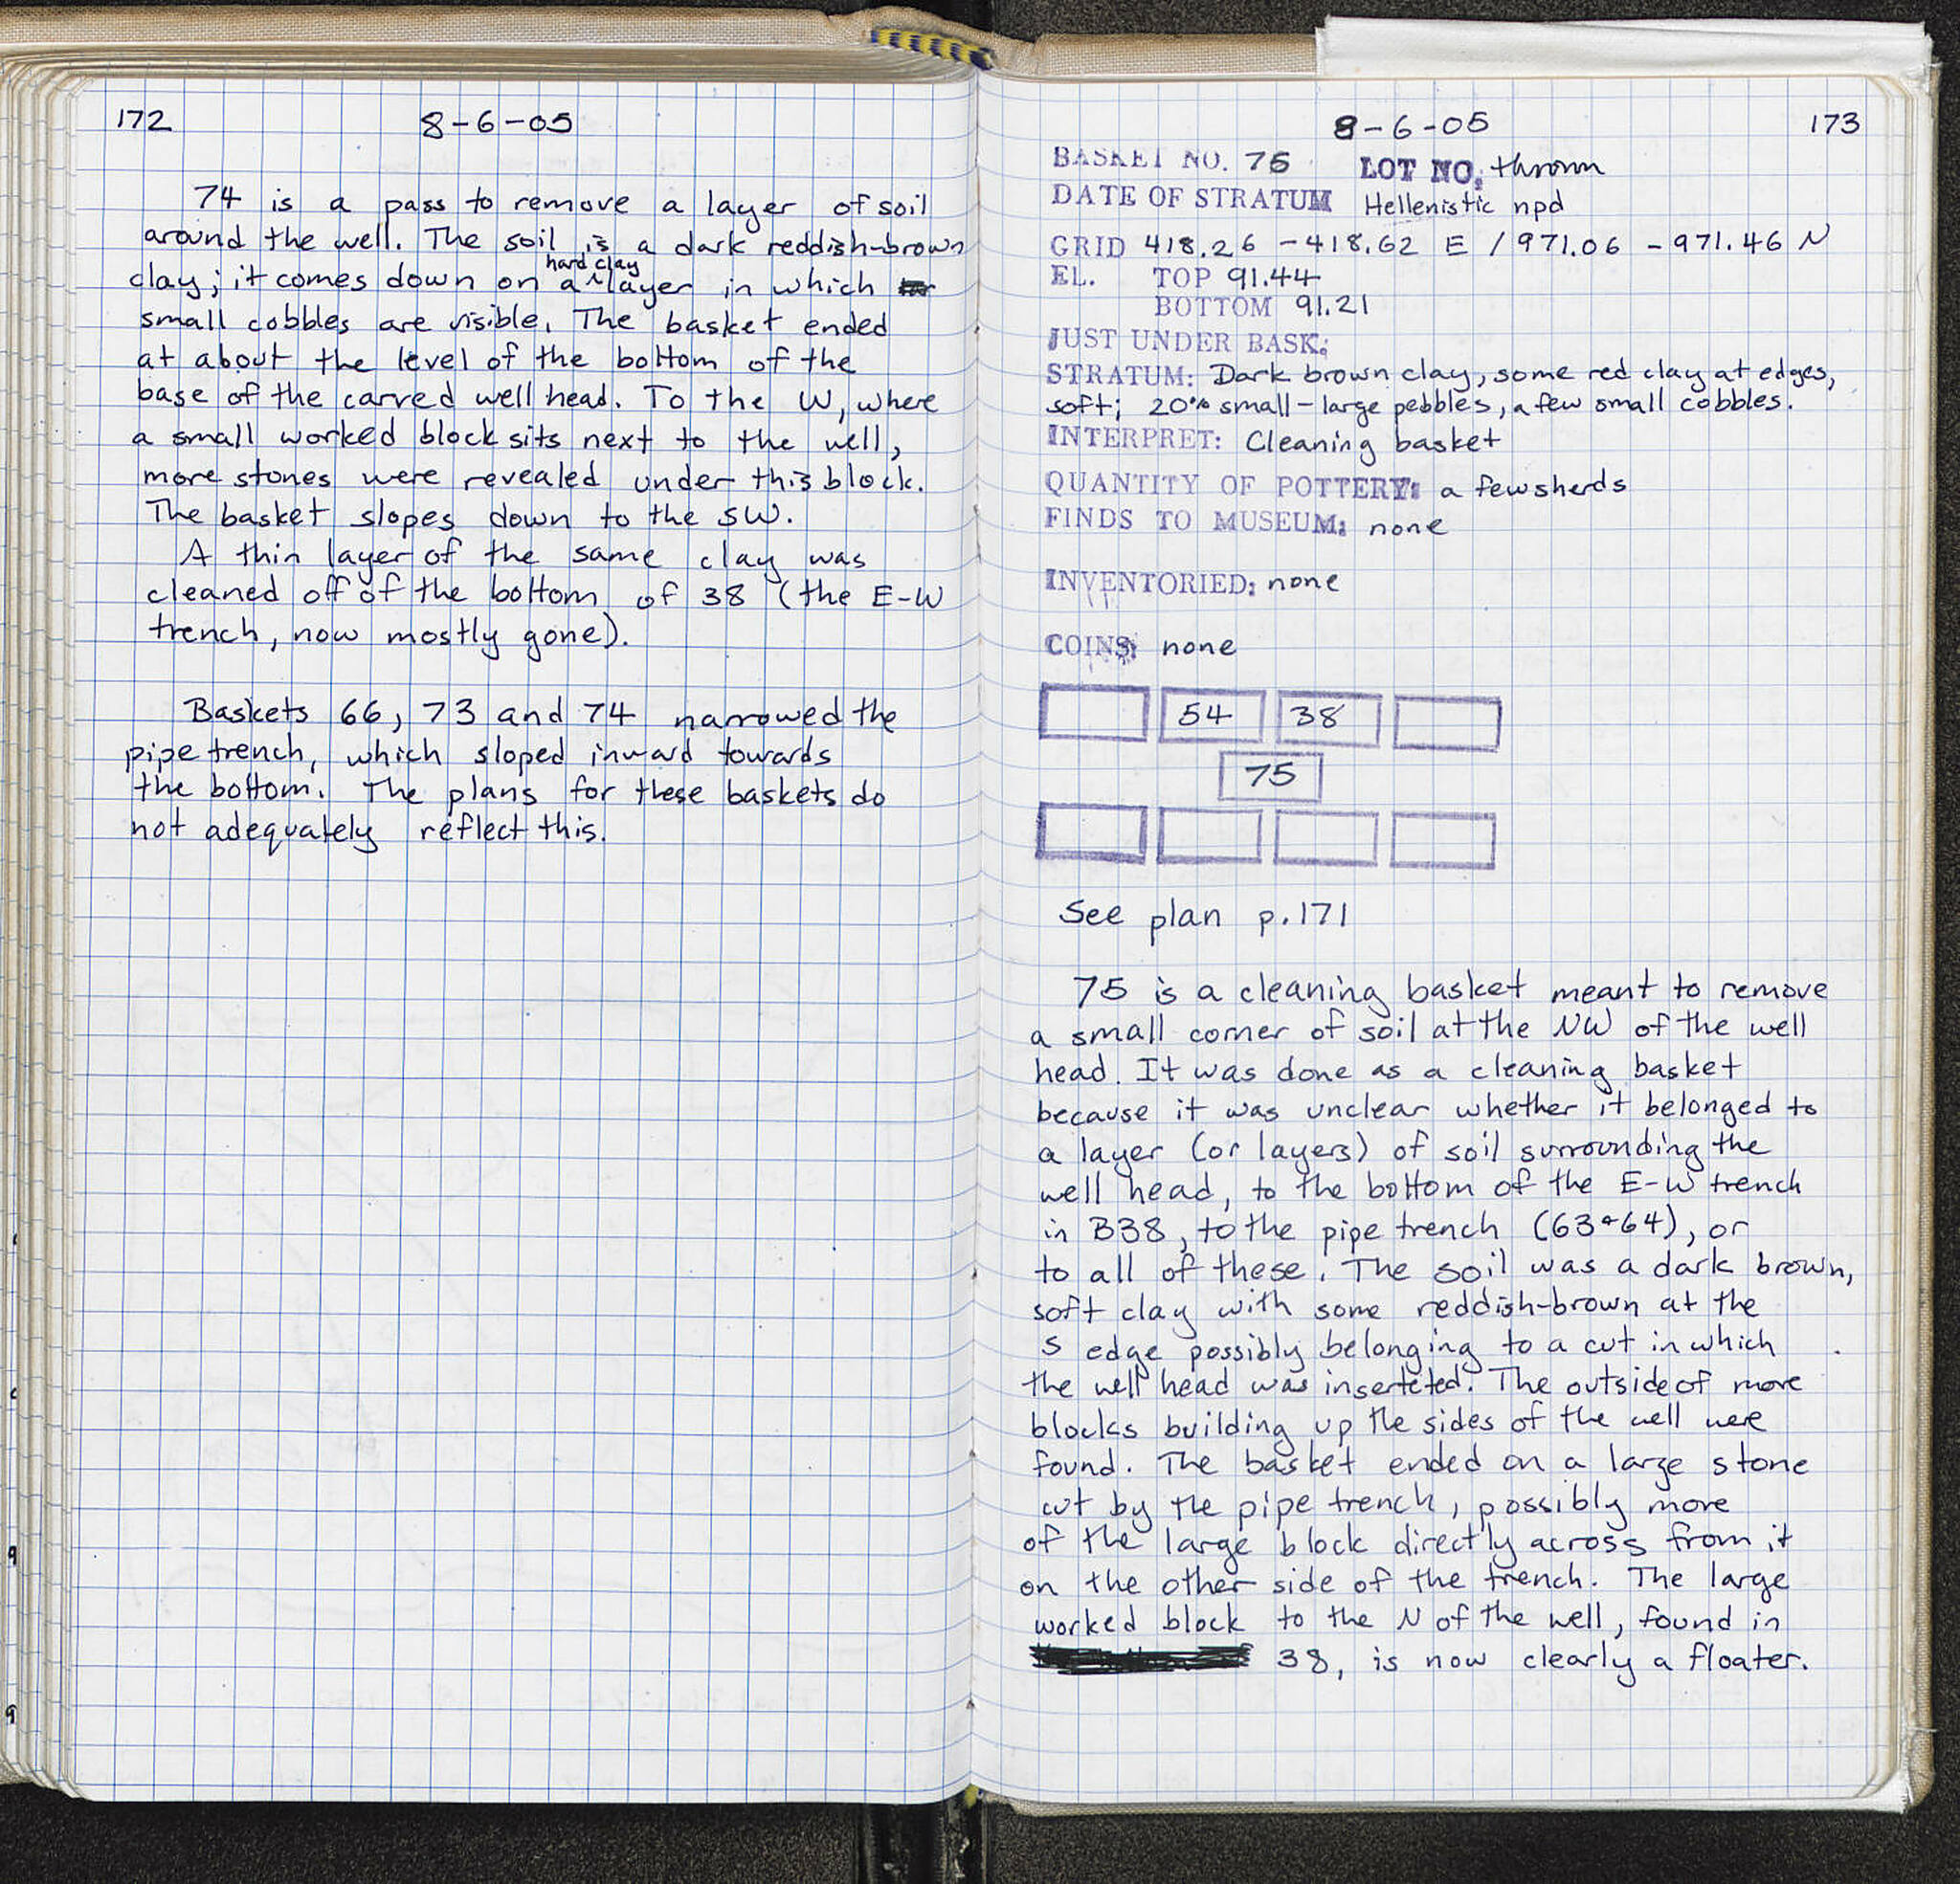 172
8-6-05
74 is a pass to remove a layer of soil
around the well. The soil is a dark reddish-brown
clay; it comes down on a hard clay layer in which
small cobbles are visible. The basket ended
at about the level of the bottom of the
base of the carved well head. To the W, where
a small worked block sits next to the well,
more stones were revealed under this block.
The basket slopes down to the SW.
A thin layer of the same clay was
cleaned off of the bottom of 38 (the E-W
trench, now mostly gone).
Baskets 66, 73 and 74 narrowed the
pipe trench, which sloped inward towards
the bottom. The plans for these baskets do
not adequately reflect this.
8-6-05
173
BASKET NO. 75 LOT NO. thrown
DATE OF STRATUM Hellenistic npd
GRID 418.26 - 418.62 E / 971.06 - 971.46 N
EL. TOP 91.44
BOTTOM 91.21
JUST UNDER BASK:
STRATUM: Dark brown clay, some red clay at edges,
soft; 20% small-large pebbles, a few small cobbles.
INTERPRET: Cleaning basket
QUANTITY OF POTTERY: a few sherds
FINDS TO MUSEUM: none
INVENTORIED: none
COINS: none
54 38
75
See plan p.171
75 is a cleaning basket meant to remove
a small corner of soil at the NW of the well
head. It was done as a cleaning basket
because it was unclear whether it belonged to
a layer (or layers) of soil surrounding the
well head, to the bottom of the E-W trench
in B38, to the pipe trench (63+64), or
to all of these. The soil was a dark brown,
soft clay with some reddish-brown at the
S edge possibly belonging to a cut in which
the well head was inserteted. The outside of more
blocks building up the sides of the well were
found. The basket ended on a large stone
cut by the pipe trench, possibly more
of the large block directly across from it
on the other side of the trench. The large
worked block to the N of the well, found in
38, is now clearly a floater.